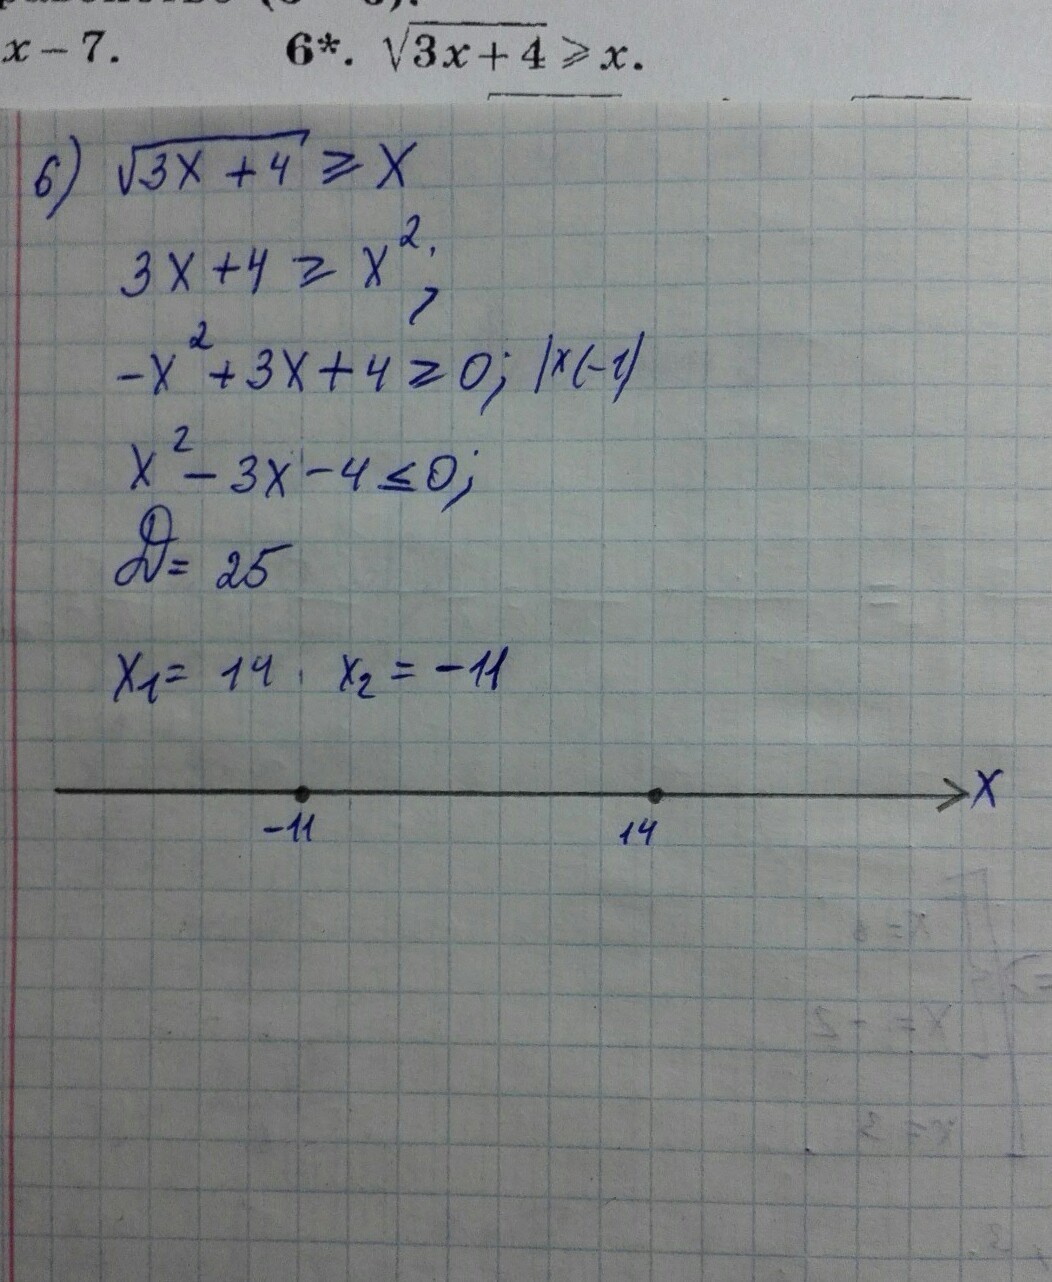 x − 7. 6*. √3x + 4 ⩾ x.
6) √3x + 4 ⩾ x
3x + 4 ⩾ x²;
-x² + 3x + 4 ⩾ 0; |x(-1)
x² - 3x - 4 ≤ 0;
D = 25
x₁ = 14, x₂ = -11
x
-11 14
x = -2